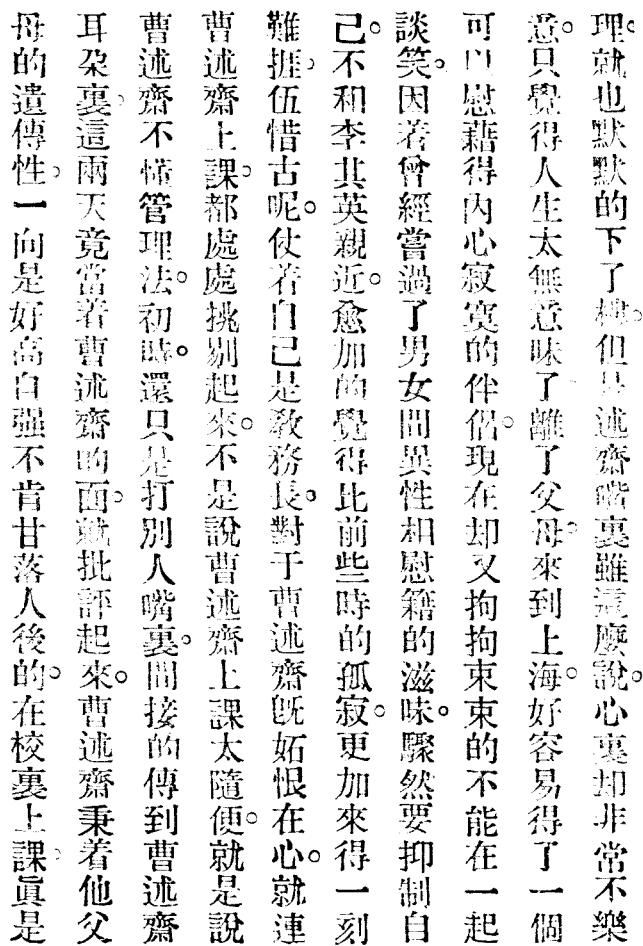 理。就也默默的下了樓。但是述齋嘴裏雖這麼說。心裏却非常不樂
意。只覺得人生太無意味了、離了父母。來到上海。好容易得了一個
可以慰藉得內心寂寞的伴侶。現在却又拘拘束束的不能在一起
談笑。因着曾經嘗過了男女間異性相慰籍的滋味。驟然要抑制自
己。不和李其英親近。愈加的覺得比前些時的孤寂。更加來得一刻
難捱。伍惜古呢。仗着自己是敎務長。對于曹述齋旣妬恨在心。就連
曹述齋上課。都處處挑剔起來。不是說曹述齋上課太隨便。就是說
曹述齋不懂管理法。初時。還只是打別人嘴裏。間接的傳到曹述齋
耳朶裏。這兩天竟當着曹述齋的面。就批評起來。曹述齋秉着他父
母的遺傳性。一向是好高自强不肯甘落人後的。在校裏上課。眞是